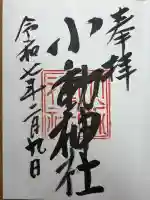 奉拝
小動神社
令和七年二月九日